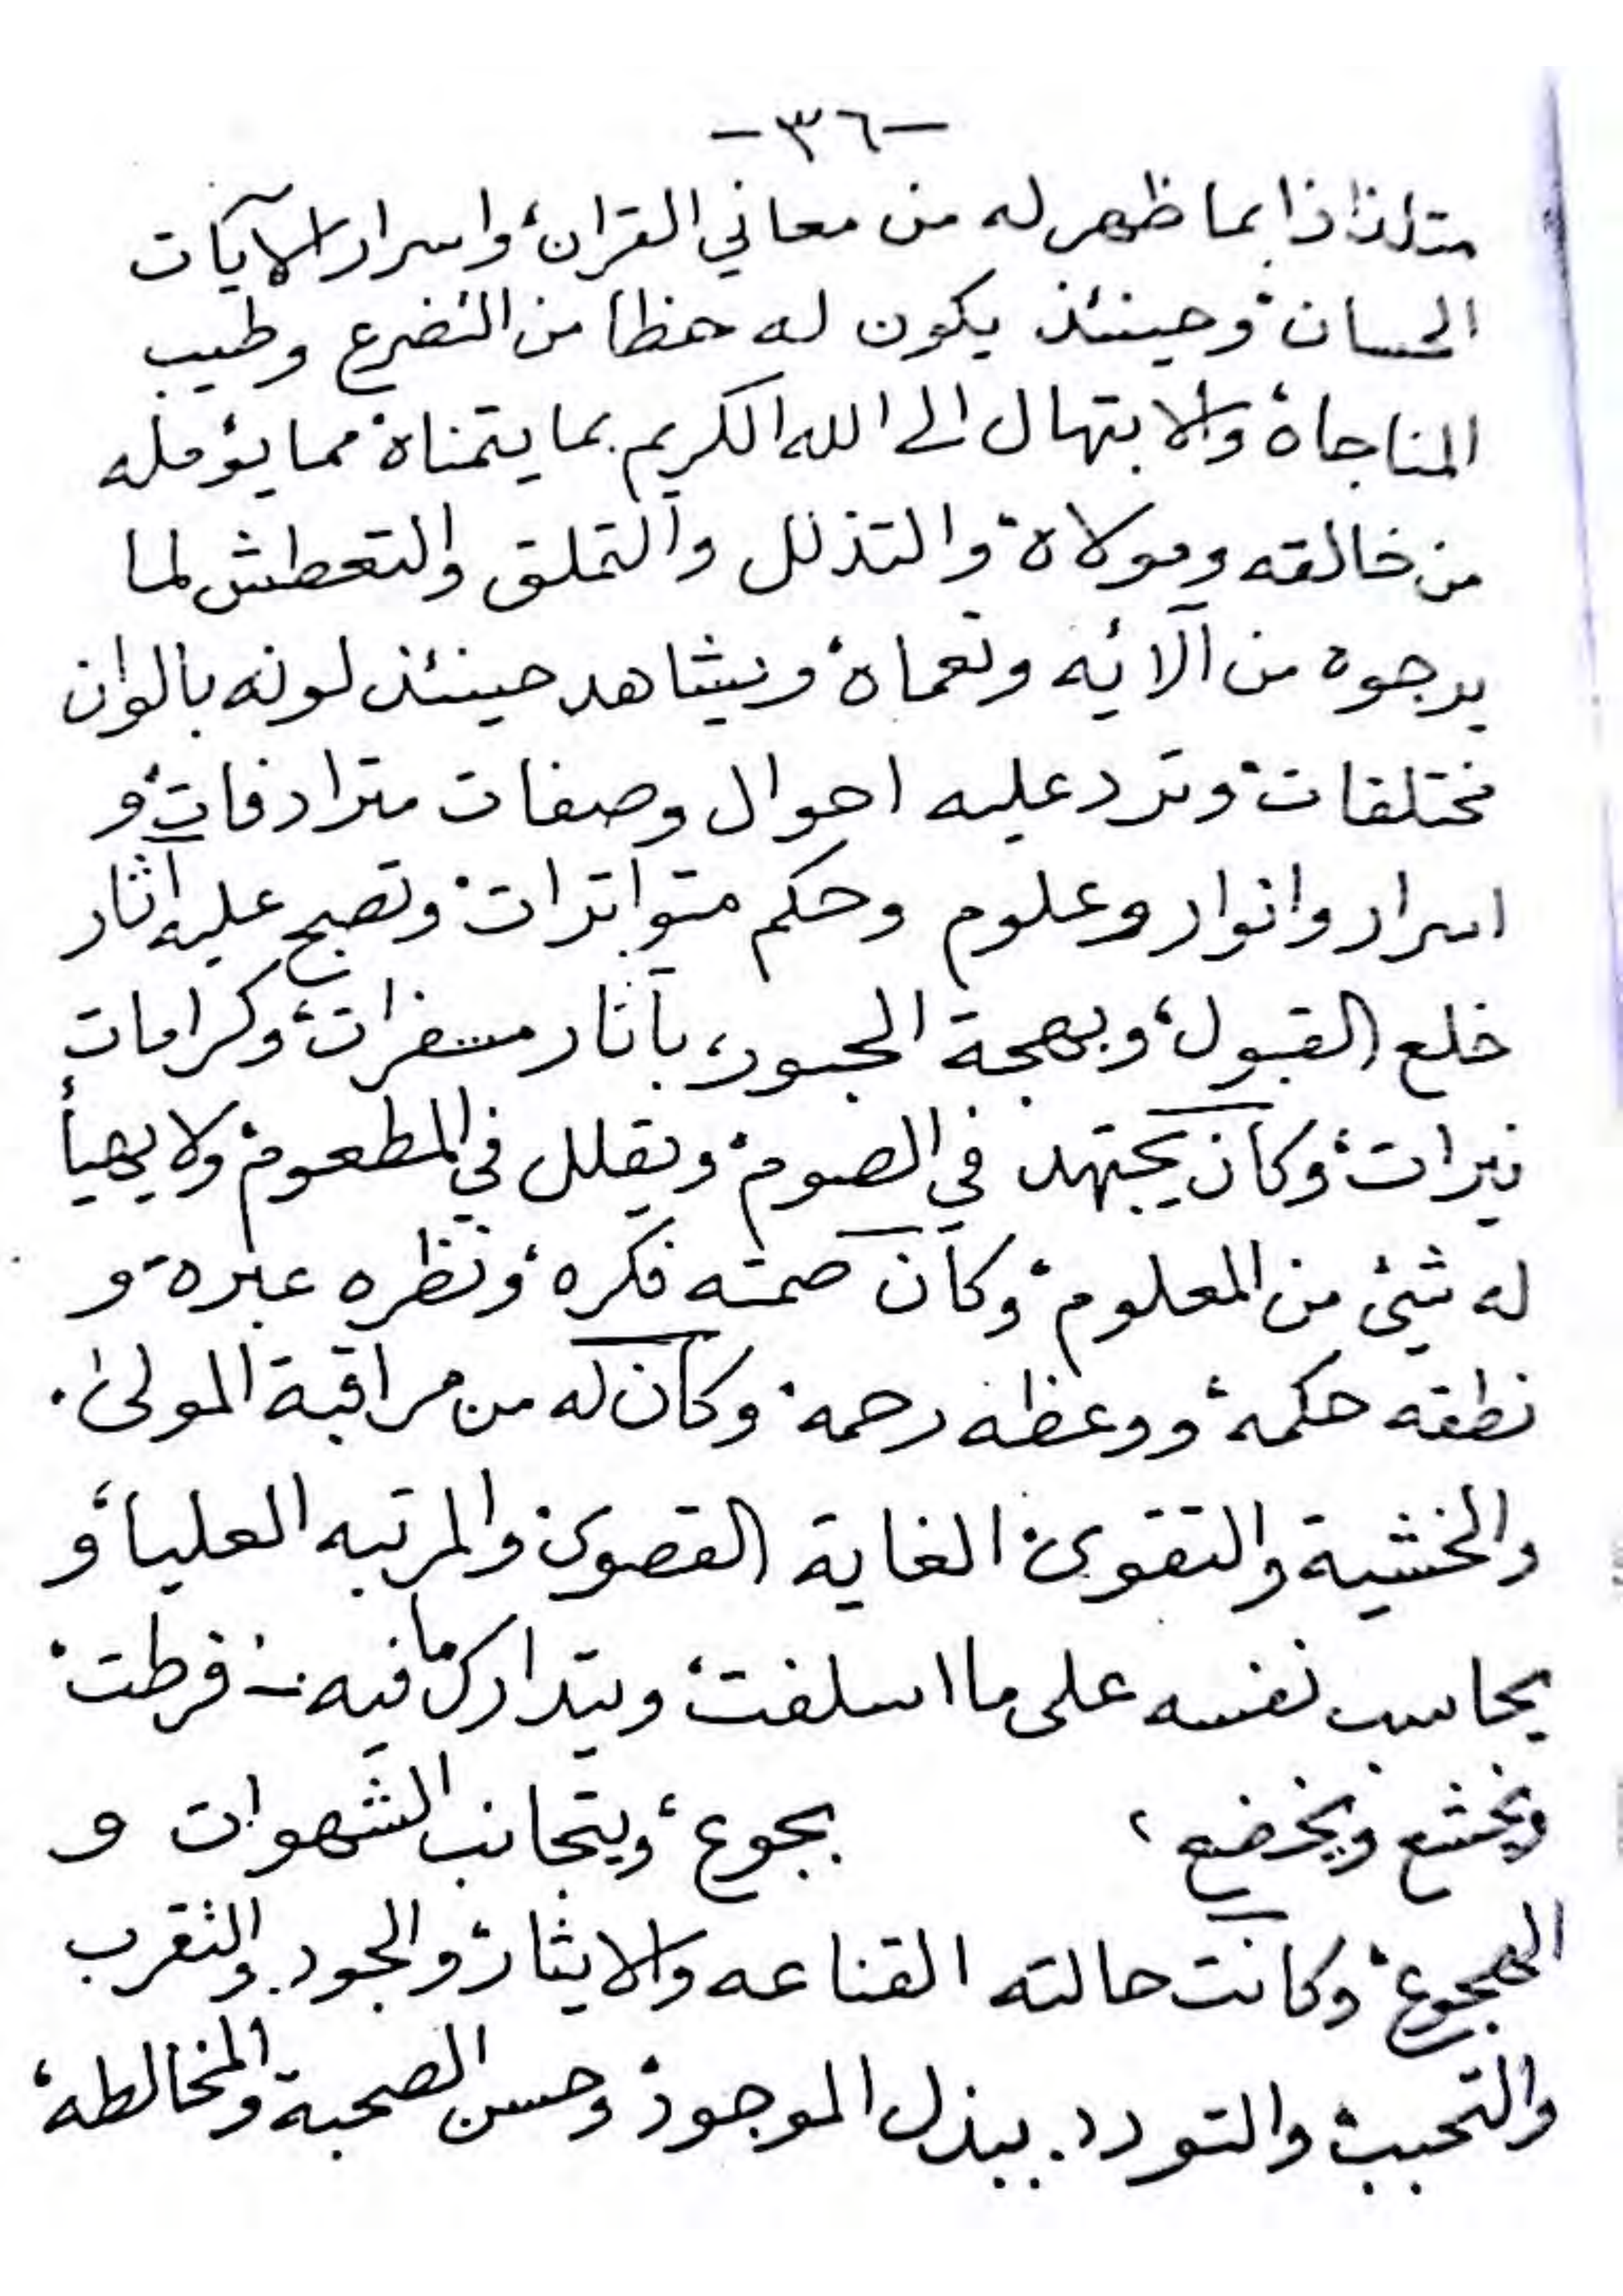 -٣٦-
متلذذا بما ظهر له من معاني القران، واسرار الآيات
الحسان، وحينئذ يكون له حظا من التضرع وطيب
المناجاة، والابتهال الى الله الكريم بما يتمناه، مما يؤمله
من خالقه ومولاه، والتذلل والتملق والتعطش لما
يرجوه من آلائه ونعماه، ويشاهد حينئذ لونه بالوان
مختلفات، وترد عليه احوال وصفات مترادفات، و
اسرار وانوار وعلوم وحكم متواترات، وتصبح عليه آثار
خلع القبول، وبهجة الحبور، بآثار مسفرات، وكرامات
نيرات، وكان يجتهد في الصوم، ويقلل في المطعوم، ولا يهيأ
له شيئ من المعلوم، وكان صمته فكره، ونظره عبره، و
نطقه حكمة، ووعظه رحمه، وكان له من مراقبة المولى،
والخشية والتقوى، الغاية القصوى، والمرتبه العليا، و
يحاسب نفسه على ما اسلفت، ويتدارك ما فيه فرطت،
ويخشع ويخضع، بجوع، ويتجانب الشهوات و
الهجوع، وكانت حالته القناعه والايثار، والجود. والتقرب
والتحبب، والتودد. ببذل الموجود، وحسن الصحبة والمخالطه،